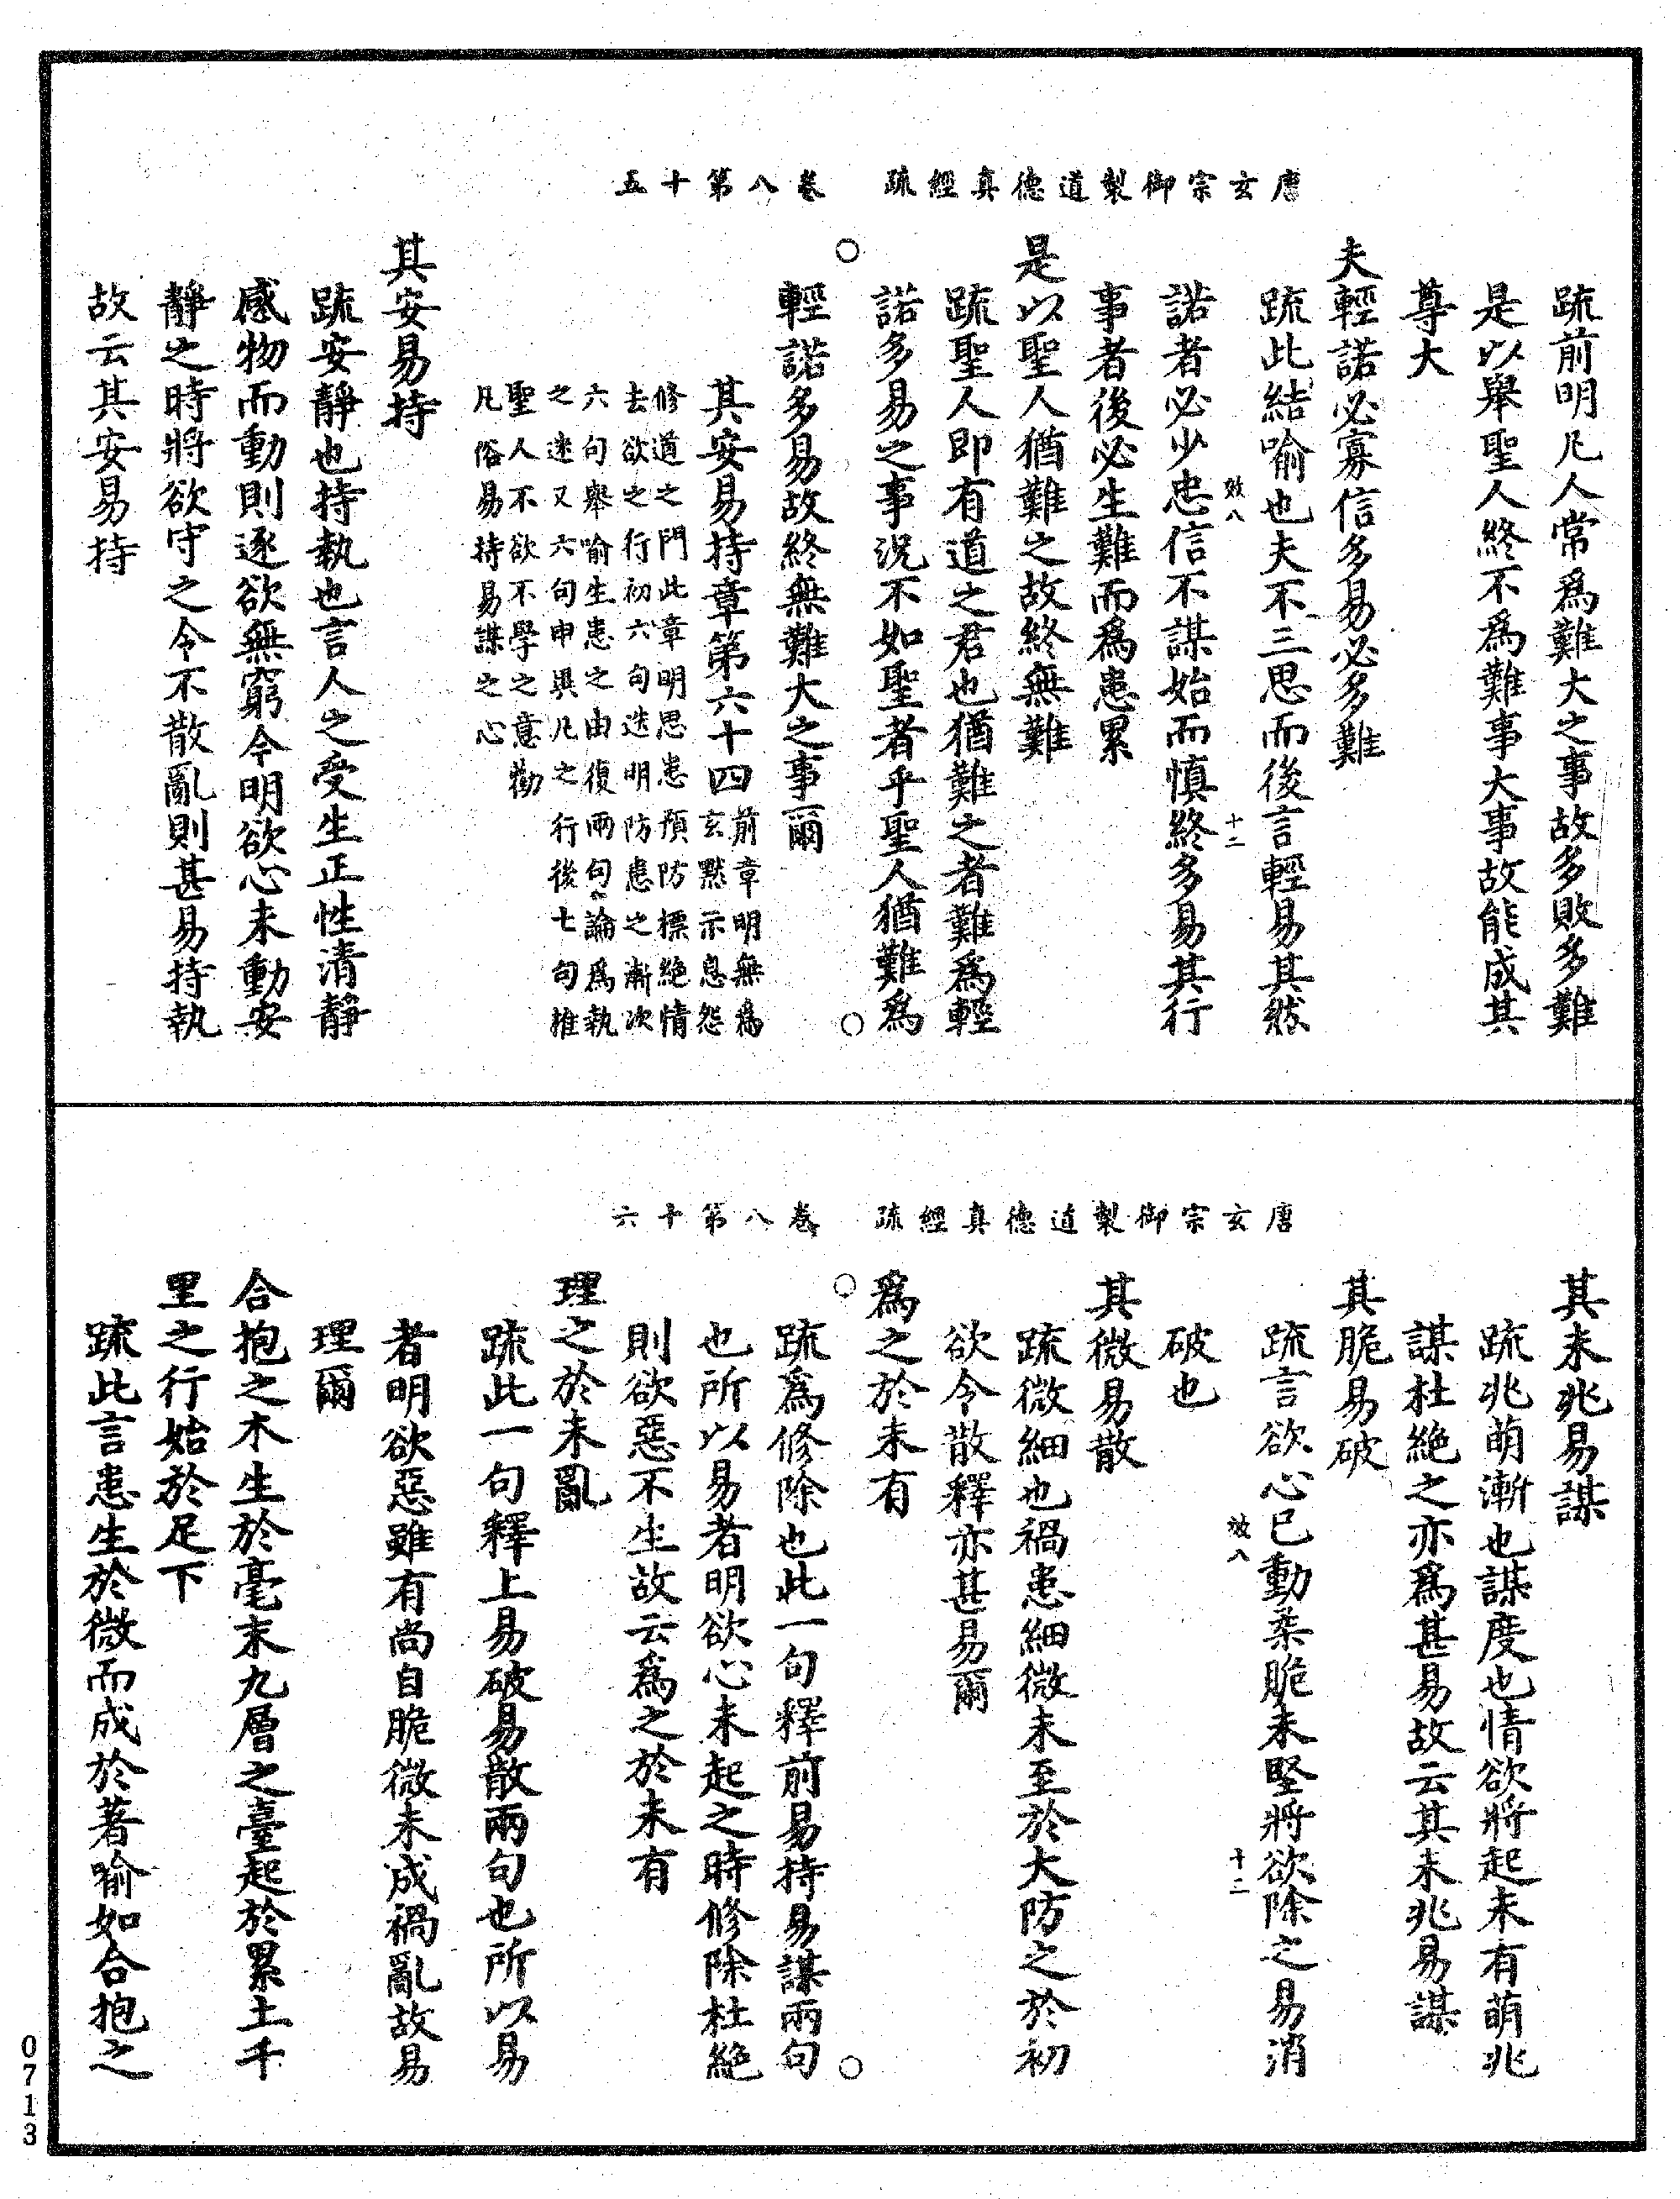 唐玄宗御製道德真經疏　卷八第十五
疏前明凡人常為難大之事故多敗多難
是以舉聖人終不為難事大事故能成其
尊大
夫輕諾必寡信多易必多難
疏此結喻也夫不三思而後言輕易其然
效八　十二
諾者必少忠信不謀始而慎終多易其行
事者後必生難而為患累
是以聖人猶難之故終無難
疏聖人即有道之君也猶難之者難為輕
諾多易之事況不如聖者乎聖人猶難為
○　○
輕諾多易故終無難大之事爾
其安易持章第六十四 前章明無為
玄默示息怨
修道之門此章明思患預防標絕情
去欲之行初六句迭明防患之漸次
六句舉喻生患之由復兩句論為執
之迷又六句申興凡之行後七句推
聖人不欲不學之意勸
凡俗易持易謀之心
其安易持
疏安靜也持執也言人之受生正性清靜
感物而動則逐欲無窮今明欲心未動安
靜之時將欲守之令不散亂則甚易持執
故云其安易持
唐玄宗御製道德真經疏　卷八第十六
其未兆易謀
疏兆萌漸也謀度也情欲將起未有萌兆
謀杜絕之亦為甚易故云其未兆易謀
其脆易破
疏言欲心已動柔脆未堅將欲除之易消
效八　十二
破也
其微易散
疏微細也禍患細微未至於大防之於初
欲令散釋亦甚易爾
為之於未有
○　○
疏為修除也此一句釋前易持易謀兩句
也所以易者明欲心未起之時修除杜絕
則欲惡不生故云為之於未有
理之於未亂
疏此一句釋上易破易散兩句也所以易
者明欲惡雖有尚自脆微未成禍亂故易
理爾
合抱之木生於毫末九層之臺起於累土千
里之行始於足下
疏此言患生於微而成於著喻如合抱之
0713